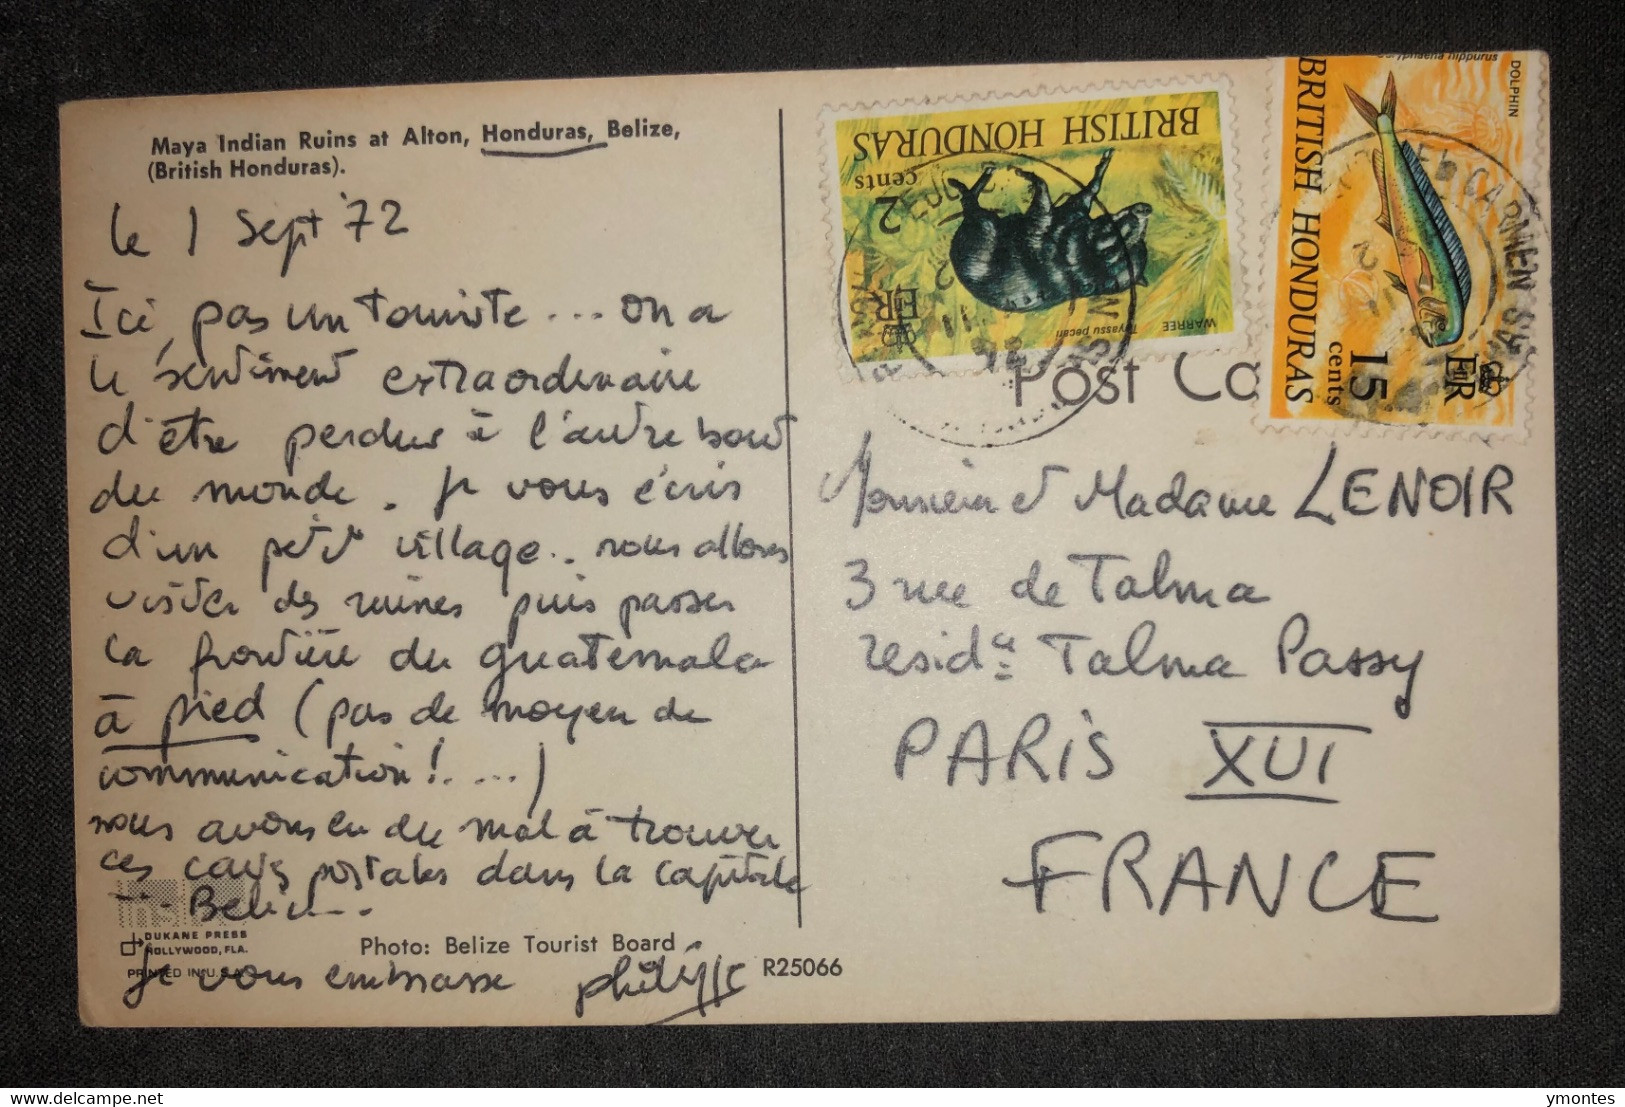 Maya Indian Ruins at Alton, Honduras, Belize,
(British Honduras).
le 1 Sept '72
Ici, pas un touriste ... on a
le sentiment extraordinaire
d'être perdus à l'autre bout
du monde. Je vous écris
d'un petit village.. nous allons
visiter des ruines puis passer
la frontière du guatemala
à pied (pas de moyen de
communication! ....)
nous avons eu du mal à trouver
ces cartes postales dans la capitale
Belize...
DUKANE PRESS
HOLLYWOOD, FLA.
PRINTED IN U.S.A.
Photo: Belize Tourist Board
R25066
je vous embrasse philippe
BRITISH HONDURAS
2
cents
WARREE Tayassu pecari
ER
BRITISH HONDURAS
15
cents
ER
DOLPHIN
Coryphaena hippurus
CARMEN
Post Ca
Monsieur et Madame LENOIR
3 rue de Talma
resid ce Talma Passy
PARIS XVI
FRANCE
ymontes